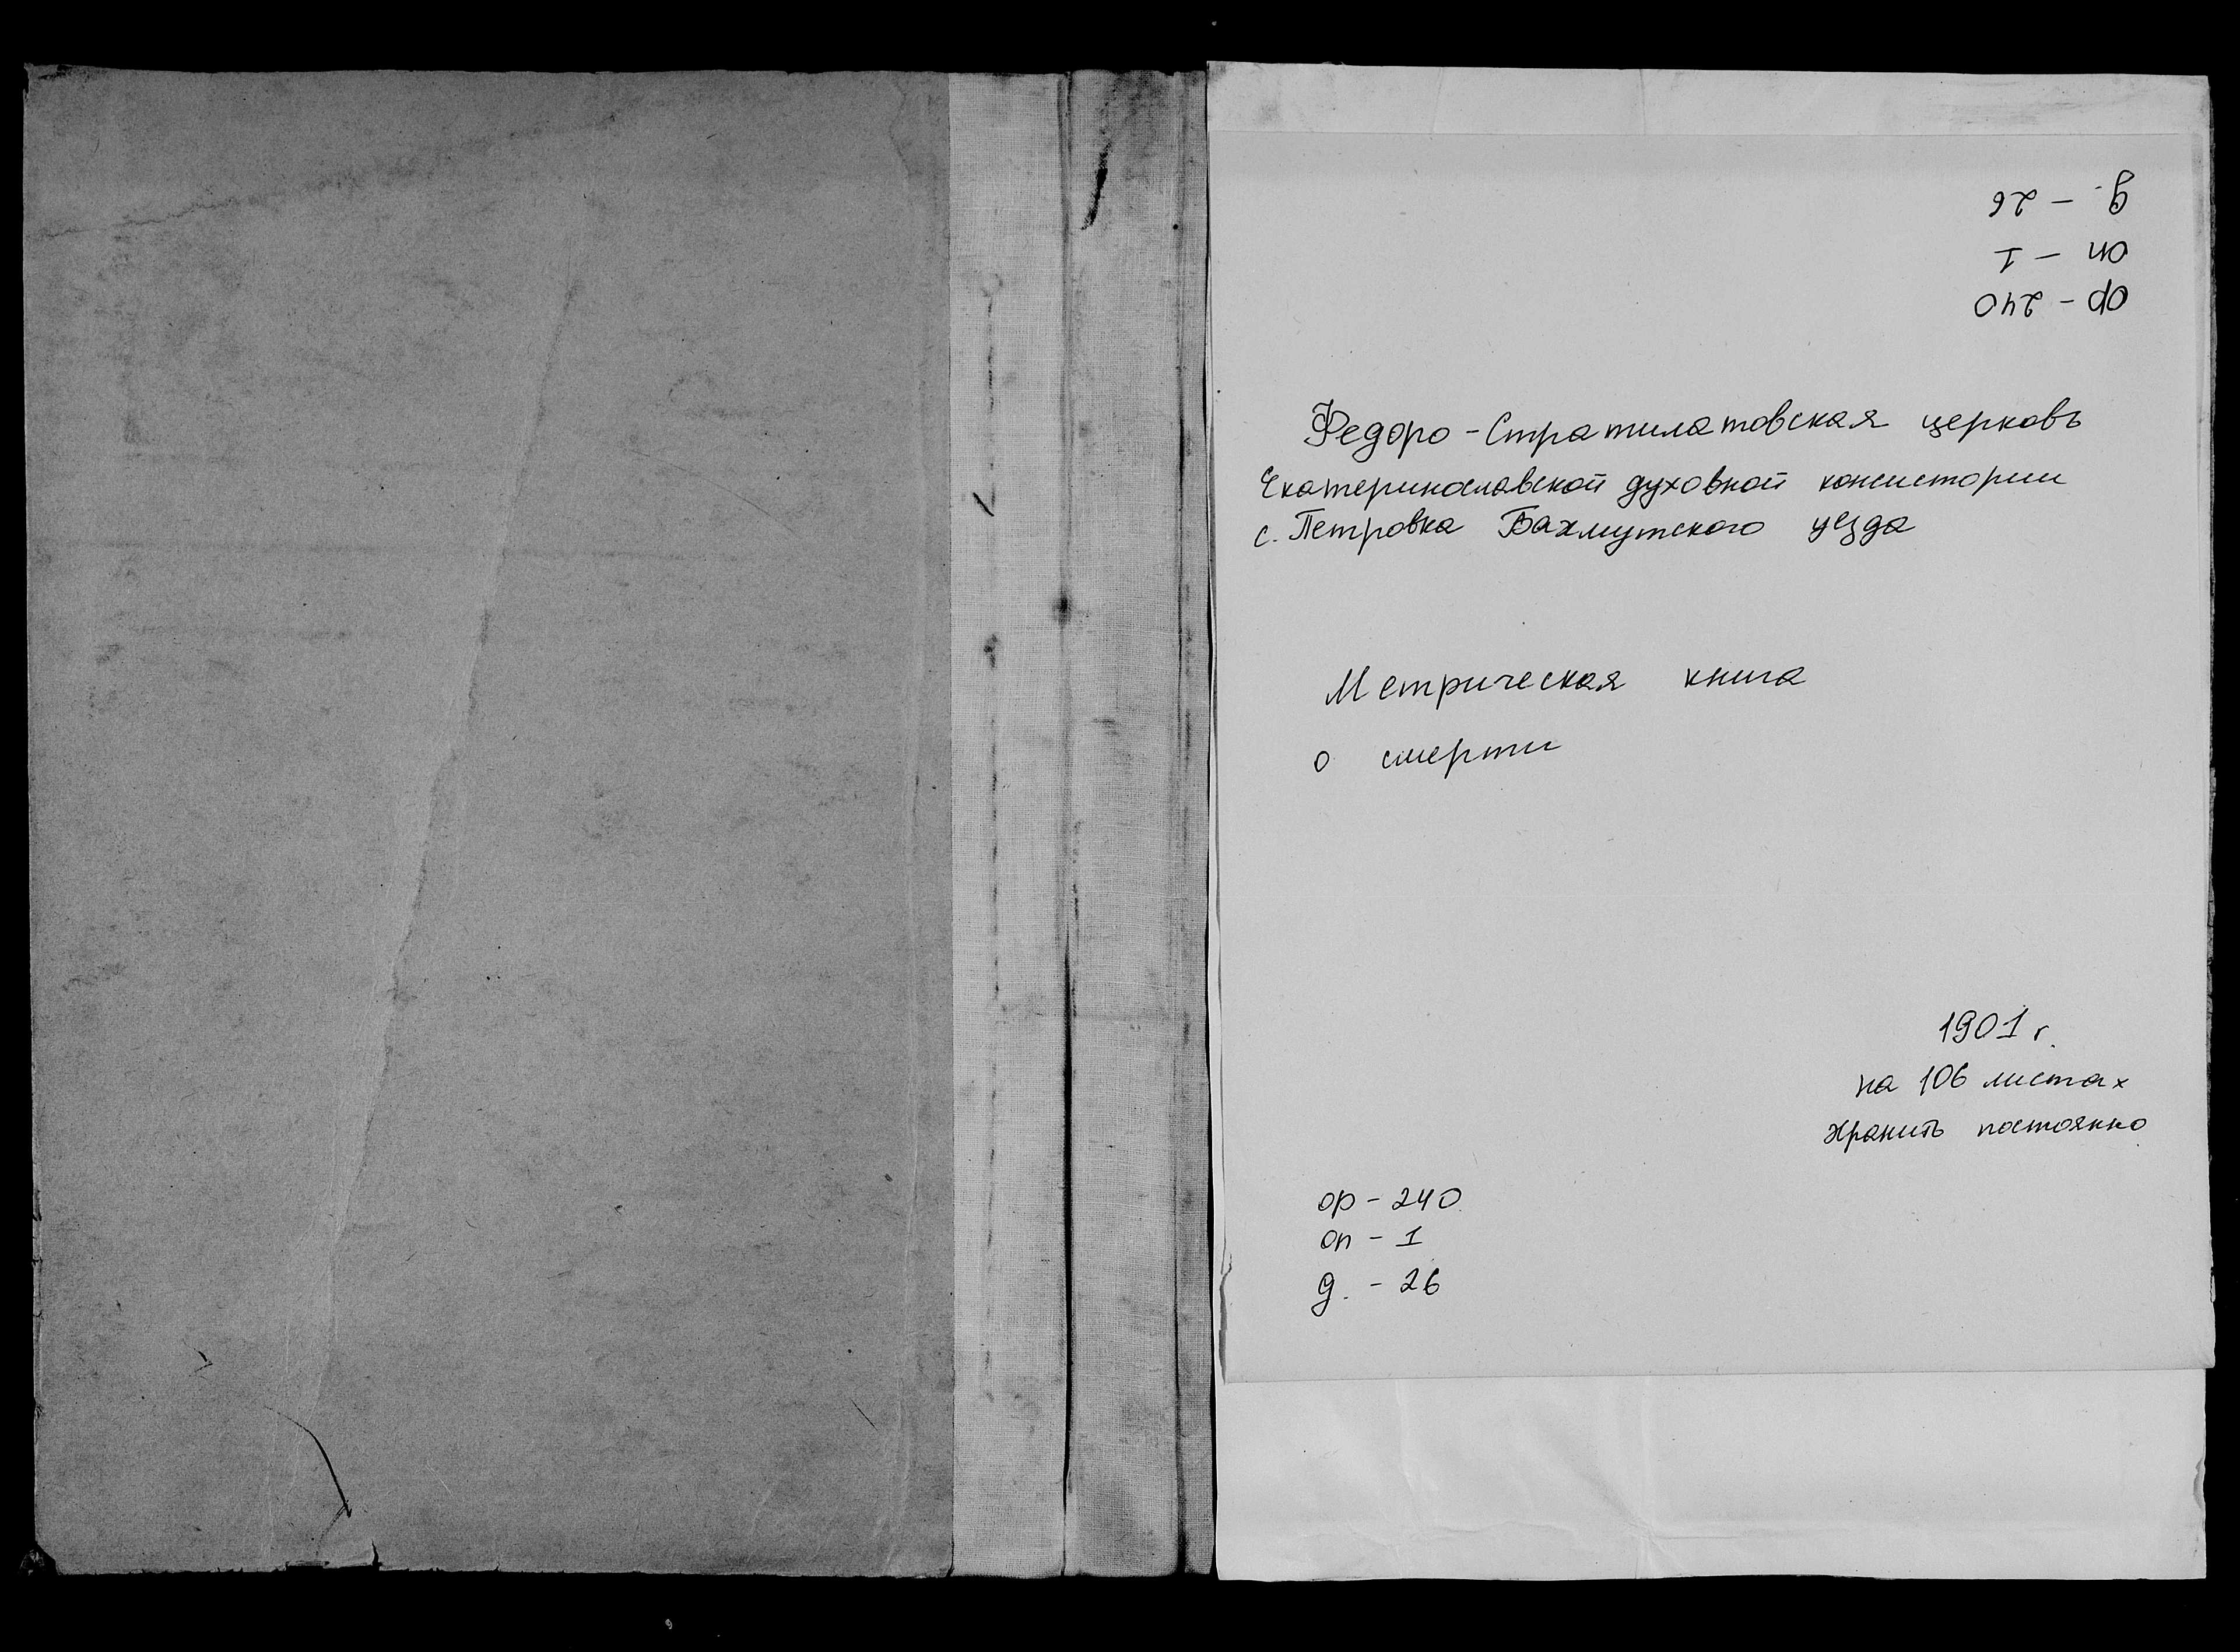 д. - 26
оп - 1
ф - 240
Федоро-Стратилатовская церковь
Екатеринославской духовной консистории
с. Петровка Бахмутского уезда
Метрическая книга
о смерти
1901 г.
на 106 листах
хранить постоянно
ф - 240
оп - 1
д. - 26